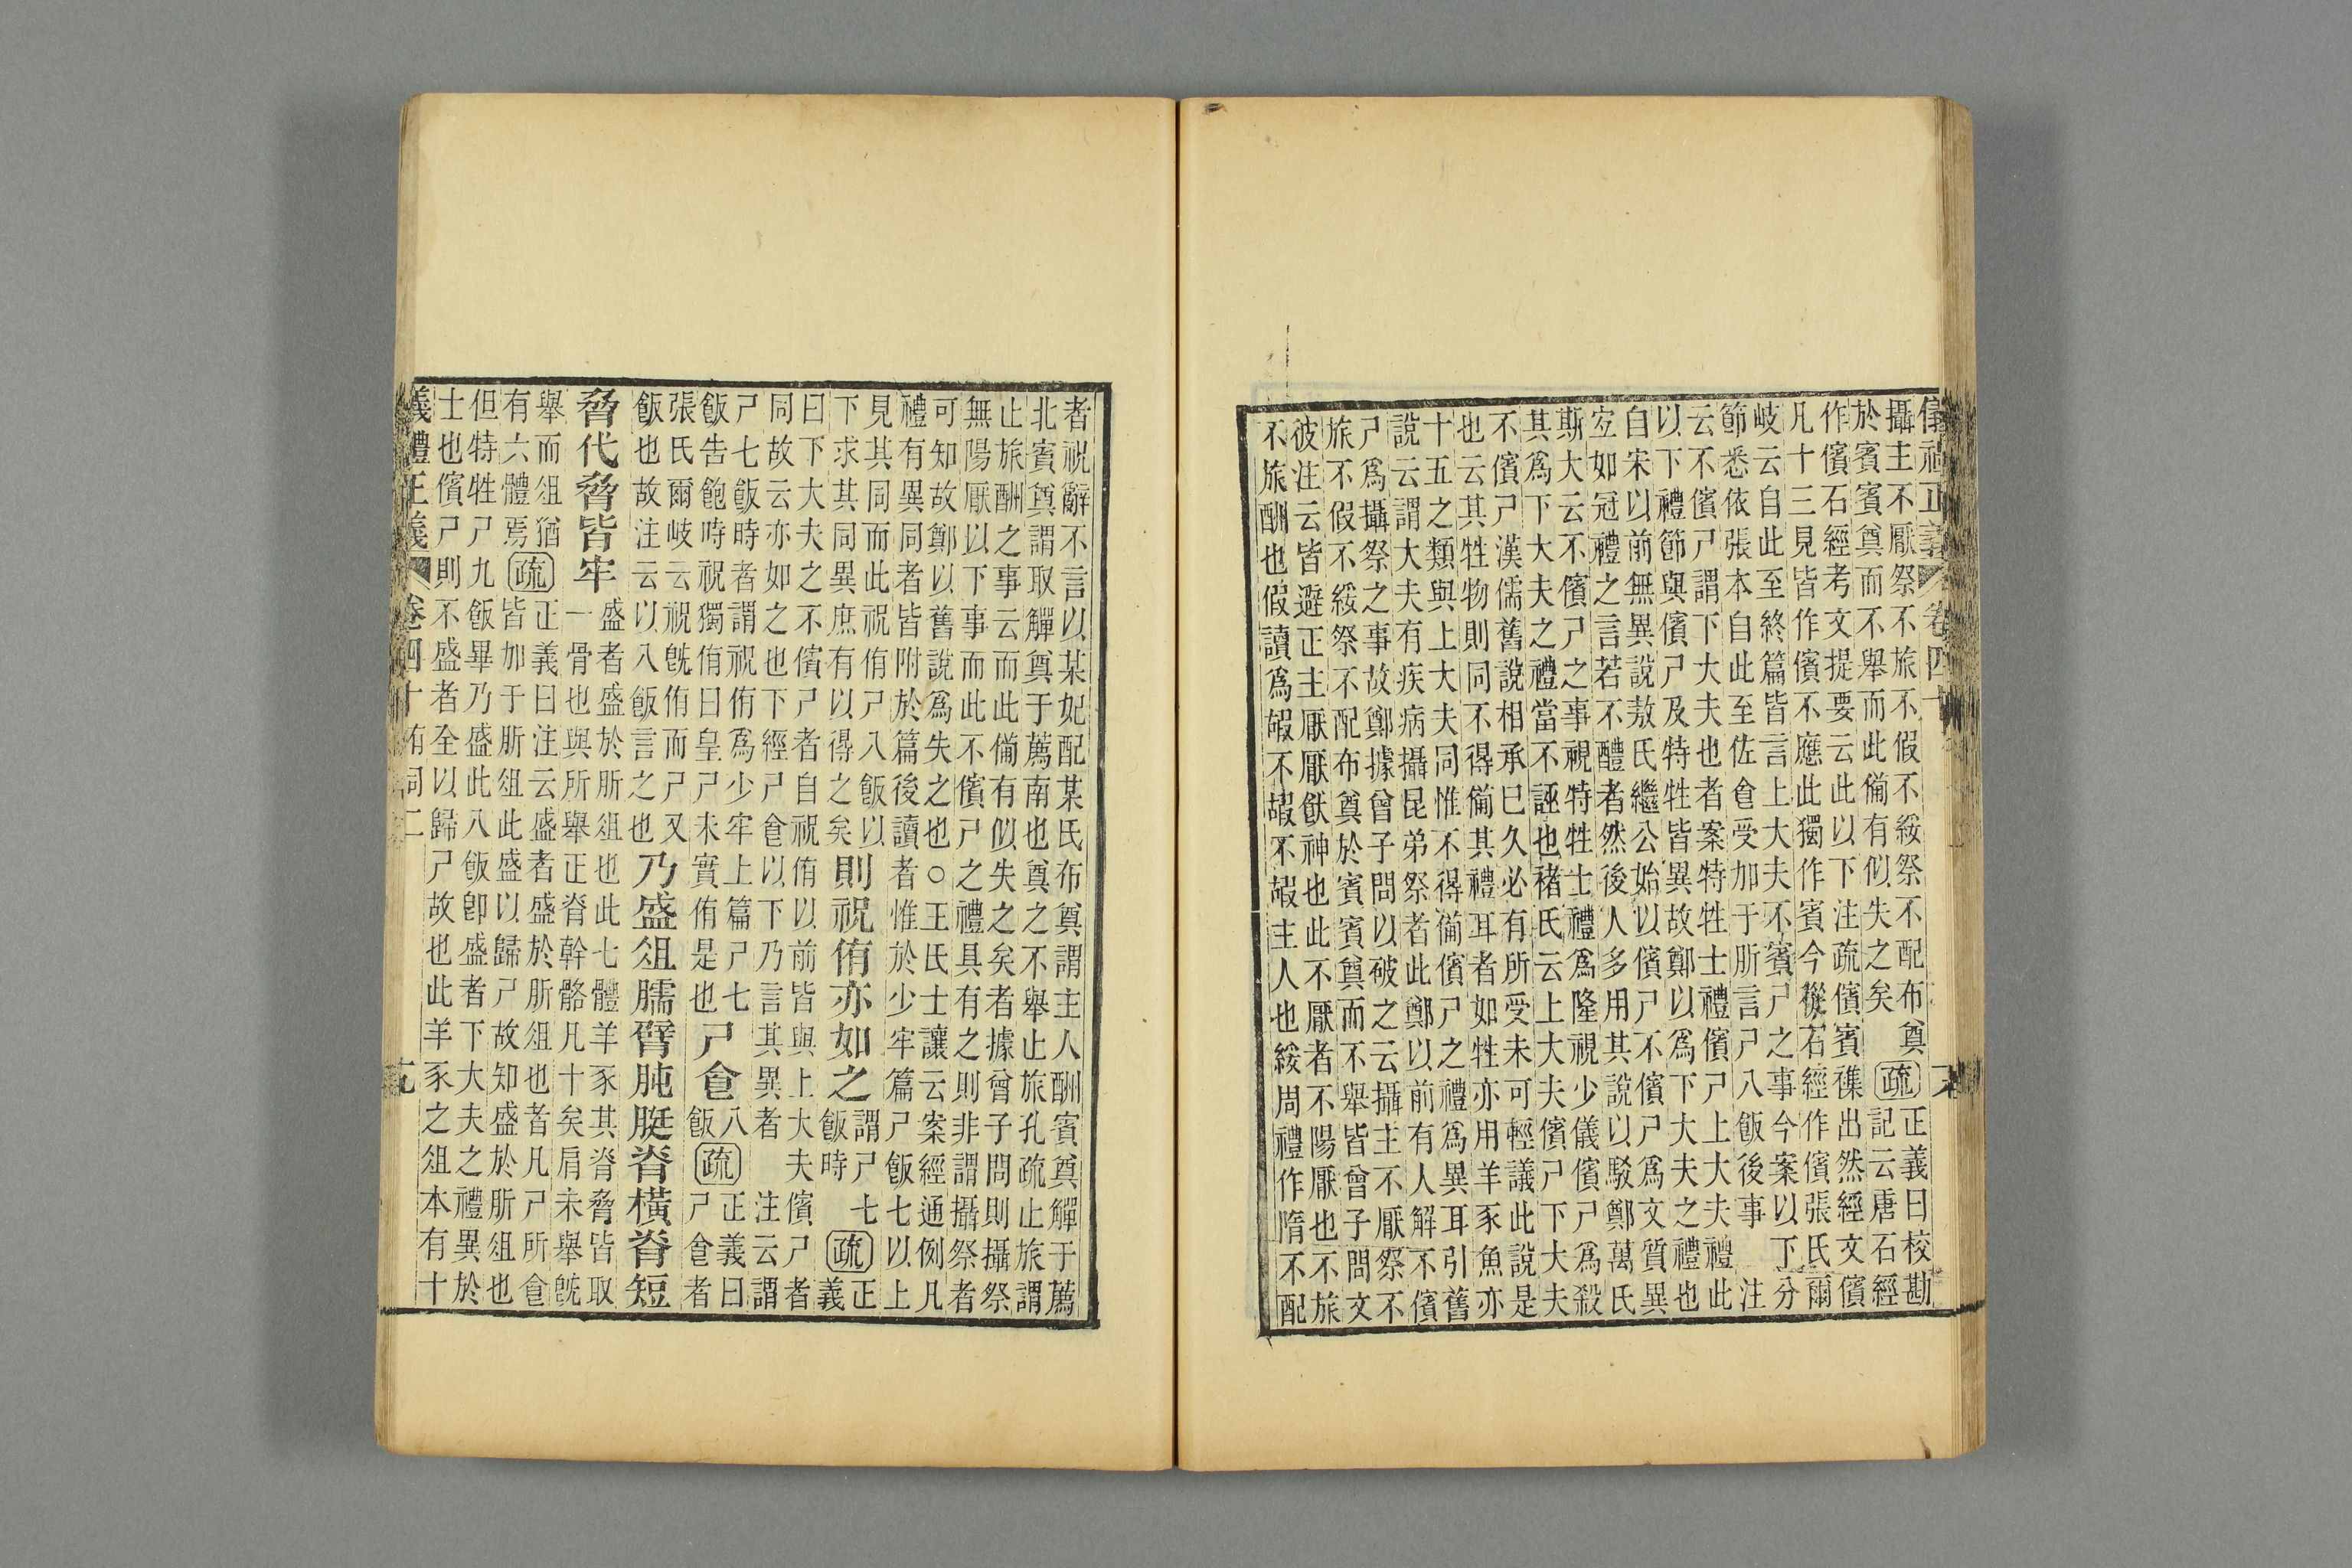 儀禮正義 卷四十
攝主不厭祭不旅不假不綏祭不配布奠 疏 正義曰校勘
於賓賓奠而不舉而此僃有似失之矣 記云唐石經
作儐石經考文提要云此以下注疏儐賓襍出然經文儐
凡十三見皆作儐不應此獨作賓今從石經作儐張氏爾
岐云自此至終篇皆言上大夫不賓尸之事今案以下分
節悉依張本自此至佐食受加于肵言尸八飯後事 注
云不儐尸謂下大夫也者案特牲士禮儐尸上大夫禮此
以下禮節與儐尸及特牲皆異故鄭以爲下大夫之禮也
自宋以前無異說敖氏繼公始以儐尸不儐尸爲文質異
宐如冠禮之言若不醴者然後人多用其說以駁鄭萬氏
斯大云不儐尸之事視特牲士禮爲隆視少儀儐尸爲殺
其爲下大夫之禮當不誣也褚氏云上大夫儐尸下大夫
不儐尸漢儒舊說相承巳久必有所受未可輕議此說是
也云其牲物則同不得僃其禮耳者如牲亦用羊豕魚亦
十五之類與上大夫同惟不得僃儐尸之禮爲異耳引舊
說云謂大夫有疾病攝昆弟祭者此鄭以前有人解不儐
尸爲攝祭之事故鄭據曾子問以破之云攝主不厭祭不
旅不假不綏祭不配布奠於賓賓奠而不舉皆曾子問文
彼注云皆避正主厭厭飫神也此不厭者不陽厭也不旅
不旅酬也假讀爲嘏不嘏不嘏主人也綏周禮作隋不配
者祝辭不言以某妃配某氏布奠謂主人酬賓奠觶于薦
北賓奠謂取觶奠于薦南也奠之不舉止旅孔疏止旅謂
止旅酬之事云而此僃有似失之矣者據曾子問則攝祭
無陽厭以下事而此不儐尸之禮具有之則非謂攝祭者
可知故鄭以舊說爲失之也○王氏士讓云案經通例凡
禮有異同者皆附於篇後讀者惟於少牢篇尸飯七以上
見其同而此祝侑尸八飯以
下求其同異庶有以得之矣 則祝侑亦如之 謂尸七飯時 疏 正義
曰下大夫之不儐尸者自祝侑以前皆與上大夫儐尸者
同故云亦如之也下經尸食以下乃言其異者 注云謂
尸七飯時者謂祝侑爲少牢上篇尸七
飯告飽時祝獨侑曰皇尸未實侑是也 尸食 八飯 疏 正義曰尸食者
張氏爾岐云祝旣侑而尸又
飯也故注云以八飯言之也 乃盛俎臑臂肫脡脊橫脊短
脅代脅皆牢 盛者盛於肵俎也此七體羊豕其脊脅皆取
一骨也與所舉正脊幹骼凡十矣肩未舉旣
舉而俎猶有六體焉 疏 正義曰注云盛者盛於肵俎也者凡尸所食
皆加于肵俎此盛以歸尸故知盛於肵俎也
但特牲尸九飯畢乃盛此八飯卽盛者下大夫之禮異於
士也儐尸則不盛者全以歸尸故也此羊豕之俎本有十
義禮正義 卷四十 有司二